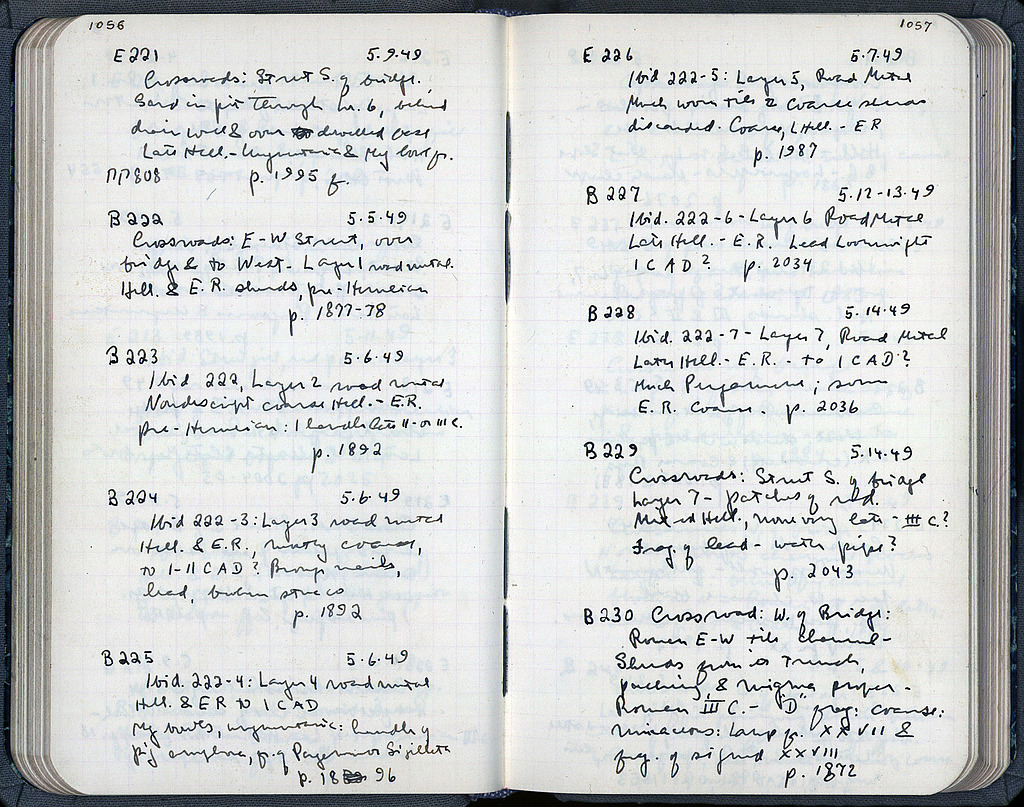 1056
E221 5.9.49
Crossroads: Street S. of bridge.
Sand in pit through Lr. 6, behind
drain well & over dwelled
Late Hell.
ΠΡ808 p. 1995 f.
B222 5.5.49
Crossroads: E-W Street, over
bridge & to West - Layer 1 road metal.
Hell. & E.R. sherds, pre-Herulian
p. 1877-78
B223 5.6.49
Ibid 222, Layer 2 road metal
Nondescript coarse Hell. - E.R.
pre-Herulian: 1 handle late II- or III c.
p. 1892
B224 5.6.49
Ibid 222-3: Layer 3 road metal
Hell. & E.R., mostly coarse,
to I-II C AD? Bronze nails,
lead, stucco
p. 1892
B225 5.6.49
Ibid. 222-4: Layer 4 road metal
Hell. & ER to I C AD
handle of
amphora, p. of Pergamene Sigillata
p. 18 96
1057
E 226 5.7.49
Ibid 222-5: Layer 5, Road Metal
Much worn tile & coarse sherds
discarded. Coarse, L Hell. - ER
p. 1987
B 227 5.12-13.49
Ibid. 222-6 - Layer 6 Road Metal
Late Hell. - E.R. Lead Loomweight
I C AD? p. 2034
B228 5.14.49
Ibid. 222-7 - Layer 7, Road Metal
Late Hell. - E.R. - to I C AD?
Much Pergamene; some
E.R. coarse. p. 2036
B229 5.14.49
Crossroads: Street S. of bridge
Layer 7 - patches of red.
Mixed Hell., none very late - III C.?
Frag. of lead - water pipe?
p. 2043
B230 Crossroad: W. of Bridge:
Roman E-W tile channel -
Sherds from its trench,
packing, & proper -
Roman III C. - "D" frag: coarse:
lamp p. XXVII &
frag. of signed XXVIII
p. 1872